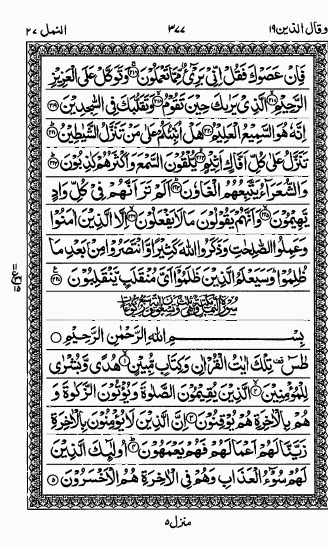 وقال الذين ١٩ ٣٧٧ النمل ٢٧
فَاِنْ عَصَوْكَ فَقُلْ اِنِّیْ بَرِیْٓءٌ مِّمَّا تَعْمَلُوْنَ ﴿٢١٦﴾ وَتَوَكَّلْ عَلَى الْعَزِیْزِ
الرَّحِیْمِ ﴿٢١٧﴾ الَّذِیْ یَرٰىكَ حِیْنَ تَقُوْمُ ﴿٢١٨﴾ وَتَقَلُّبَكَ فِی السّٰجِدِیْنَ ﴿٢١٩﴾
اِنَّهٗ هُوَ السَّمِیْعُ الْعَلِیْمُ ﴿٢٢٠﴾ هَلْ اُنَبِّئُكُمْ عَلٰی مَنْ تَنَزَّلُ الشَّیٰطِیْنُ ﴿٢٢١﴾
تَنَزَّلُ عَلٰی كُلِّ اَفَّاكٍ اَثِیْمٍ ﴿٢٢٢﴾ یُّلْقُوْنَ السَّمْعَ وَاَكْثَرُهُمْ كٰذِبُوْنَ ﴿٢٢٣﴾
وَالشُّعَرَآءُ یَتَّبِعُهُمُ الْغَاوٗنَ ﴿٢٢٤﴾ اَلَمْ تَرَ اَنَّهُمْ فِیْ كُلِّ وَادٍ
یَّهِیْمُوْنَ ﴿٢٢٥﴾ وَاَنَّهُمْ یَقُوْلُوْنَ مَا لَا یَفْعَلُوْنَ ﴿٢٢٦﴾ اِلَّا الَّذِیْنَ اٰمَنُوْا
وَعَمِلُوا الصّٰلِحٰتِ وَذَكَرُوا اللّٰهَ كَثِیْرًا وَّانْتَصَرُوْا مِنْۢ بَعْدِ مَا
ظُلِمُوْا وَسَیَعْلَمُ الَّذِیْنَ ظَلَمُوْۤا اَیَّ مُنْقَلَبٍ یَّنْقَلِبُوْنَ ﴿٢٢٧﴾
بِسْمِ اللّٰهِ الرَّحْمٰنِ الرَّحِیْمِ
طٰسٓ تِلْكَ اٰیٰتُ الْقُرْاٰنِ وَكِتَابٍ مُّبِیْنٍ ﴿١﴾ هُدًی وَّبُشْرٰی
لِلْمُؤْمِنِیْنَ ﴿٢﴾ الَّذِیْنَ یُقِیْمُوْنَ الصَّلٰوةَ وَیُؤْتُوْنَ الزَّكٰوةَ وَ
هُمْ بِالْاٰخِرَةِ هُمْ یُوْقِنُوْنَ ﴿٣﴾ اِنَّ الَّذِیْنَ لَا یُؤْمِنُوْنَ بِالْاٰخِرَةِ
زَیَّنَّا لَهُمْ اَعْمَالَهُمْ فَهُمْ یَعْمَهُوْنَ ﴿٤﴾ اُولٰٓئِكَ الَّذِیْنَ
لَهُمْ سُوْٓءُ الْعَذَابِ وَهُمْ فِی الْاٰخِرَةِ هُمُ الْاَخْسَرُوْنَ ﴿٥﴾
منزل ٥